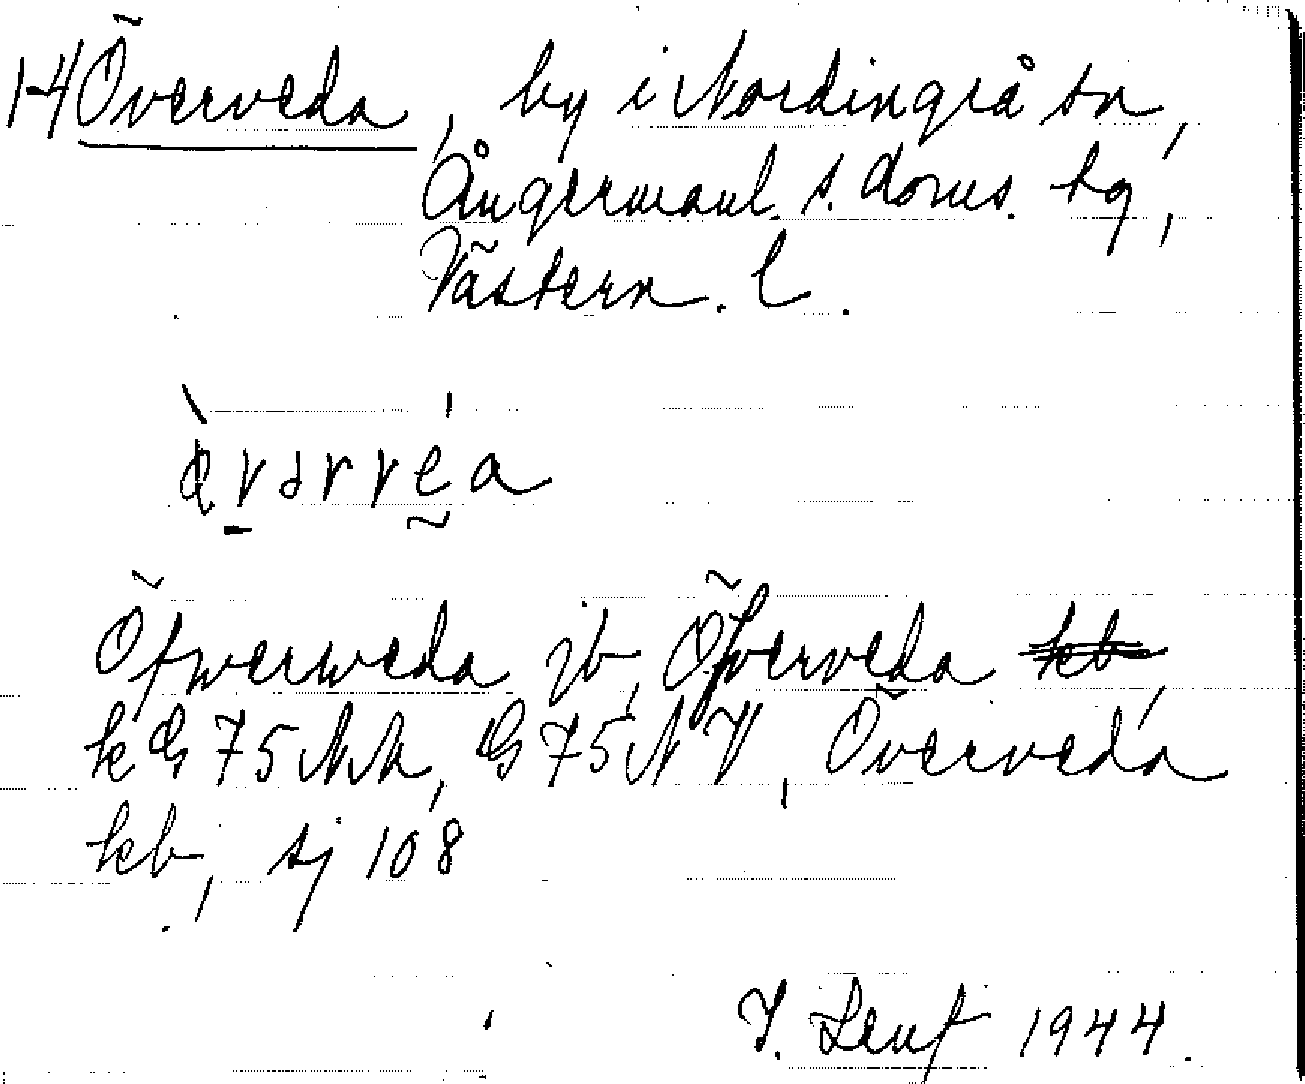 1-4 Överveda, by i Nordingrå sn,
Ångermanl. s. doms. tg,
Västern. l.
Öfwerweda jb, Öfverveda
k G 75 NA, G 75 NV, Överveda
kb, sj 108
I. Leuf 1944.